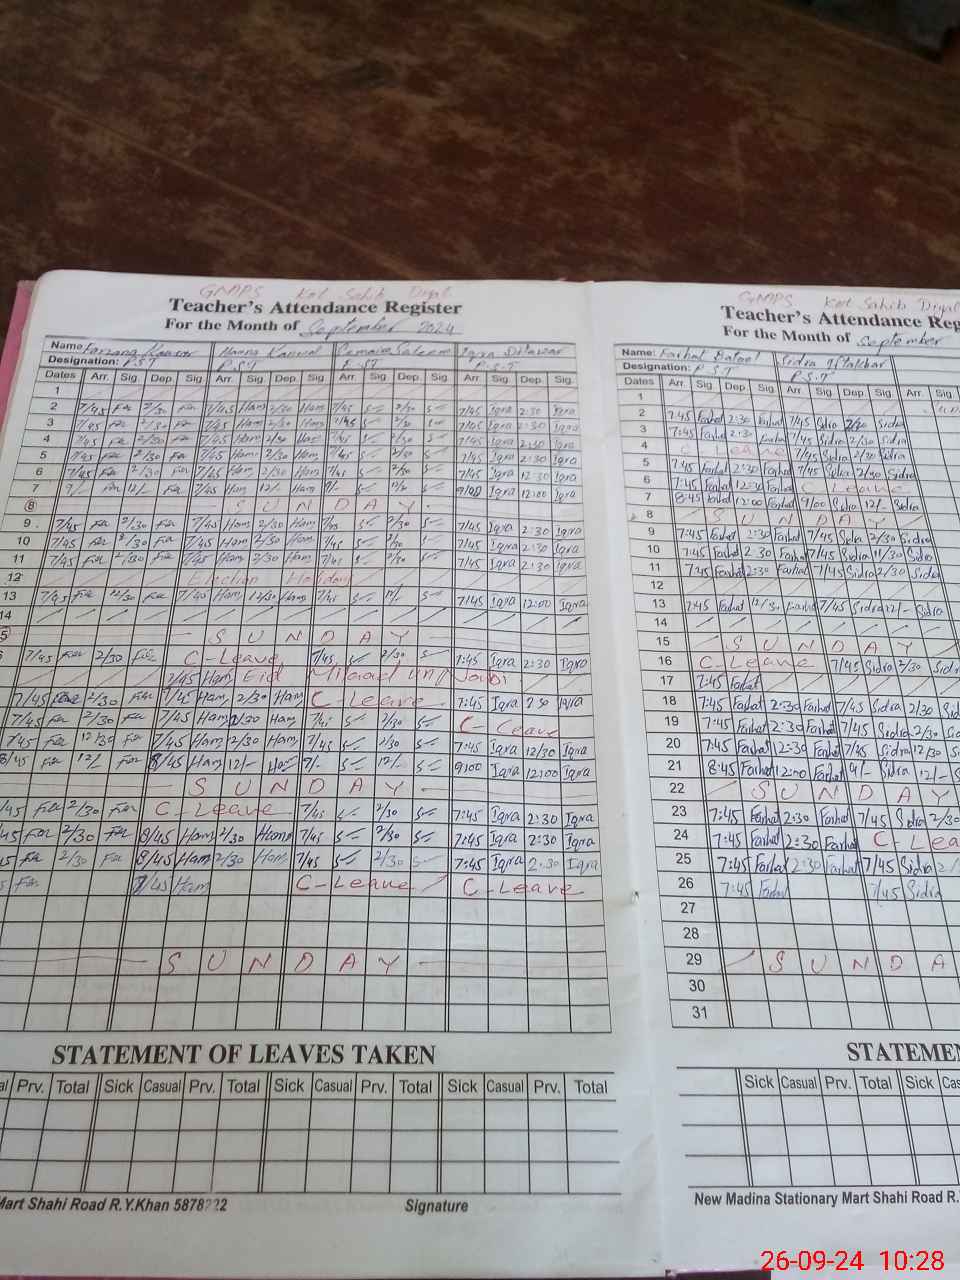 GMPS Kot Sahib Diyal
Teacher's Attendance Register
For the Month of September 2024
Name Farzana Kausar Hamna Kanwal Sumaira Saleem Iqra Dilawar
Designation: P.S.T P.S.T P.ST P.S.T
Dates Arr. Sig. Dep. Sig. Arr. Sig. Dep. Sig. Arr. Sig. Dep. Sig. Arr. Sig. Dep. Sig.
1
2 7/45 Far 2/30 Far 7/45 Ham 2/30 Ham 7/45 2/30 7/45 Iqra 2:30 Iqra
3 7/45 Far 2/30 Far 7/45 Ham 2/30 Ham 7/45 2/30 7/45 Iqra 2:30 Iqra
4 7/45 Far 2/30 Far 7/45 Ham 2/30 Ham 7/45 2/30 7/45 Iqra 2:30 Iqra
5 7/45 Far 2/30 Far 7/45 Ham 2/30 Ham 7/45 2/30 7/45 Iqra 2:30 Iqra
6 7/45 Far 2/30 Far 7/45 Ham 2/30 Ham 7/45 2/30 7/45 Iqra 12:30 Iqra
7 9/- Far 12/- Far 7/45 Ham 12/- Ham 9/- 12/- 9/00 Iqra 12:00 Iqra
8 SUNDAY
9 7/45 Far 2/30 Far 7/45 Ham 2/30 Ham 7/45 2/30 7/45 Iqra 2:30 Iqra
10 7/45 Far 2/30 Far 7/45 Ham 2/30 Ham 7/45 2/30 7/45 Iqra 2:30 Iqra
11 7/45 Far 2/30 Far 7/45 Ham 2/30 Ham 7/45 2/30 7/45 Iqra 2:30 Iqra
12 Election Holiday
13 7/45 Far 12/30 Far 7/45 Ham 12/30 Ham 7/45 12/- 7/45 Iqra 12:00 Iqra
14
5 SUNDAY
7/45 Far 2/30 Far C-Leave 7/45 2/30 7:45 Iqra 2:30 Iqra
7/45 Ham Eid Milaad un Nabi
7/45 Far 2/30 Far 7/45 Ham 2/30 Ham C-Leave 7:45 Iqra 2:30 Iqra
7/45 Far 2/30 Far 7/45 Ham 2/30 Ham 7/45 2/30 C-Leave
7/45 Far 12/30 Far 7/45 Ham 2/30 Ham 7/45 2/30 7:45 Iqra 12/30 Iqra
8/45 Far 12/- Far 8/45 Ham 12/- Ham 9/- 12/- 9:00 Iqra 12:00 Iqra
SUNDAY
/45 Far 2/30 Far C-Leave 7/45 2/30 7:45 Iqra 2:30 Iqra
45 Far 2/30 Far 8/45 Ham 2/30 Hamna 7/45 2/30 7:45 Iqra 2:30 Iqra
5 Far 2/30 Far 8/45 Ham 2/30 Ham 7/45 2/30 7:45 Iqra 2:30 Iqra
5 Far 7/45 Ham C-Leave C-Leave
SUNDAY
STATEMENT OF LEAVES TAKEN
al Prv. Total Sick Casual Prv. Total Sick Casual Prv. Total Sick Casual Prv. Total
Mart Shahi Road R.Y.Khan 5878222 Signature
GMPS Kot Sahib Diyal
Teacher's Attendance Reg
For the Month of September
Name: Farhat Batool Sidra Iftakhar
Designation: P.S.T P.S.T
Dates Arr. Sig. Dep. Sig. Arr. Sig. Dep. Sig. Arr. Sig
1
2 7:45 Farhat 2:30 Farhat 7/45 Sidra 2/30 Sidra
3 7:45 Farhat 2:30 Farhat 7/45 Sidra 2/30 Sidra
4 C-Leave 7/45 Sidra 2/30 Sidra
5 7:45 Farhat 2:30 Farhat 7/45 Sidra 2/30 Sidra
6 7:45 Farhat 12:30 Farhat C Leave
7 8:45 Farhat 12:00 Farhat 9/00 Sidra 12/- Sidra
8 SUNDAY
9 7:45 Farhat 2:30 Farhat 7/45 Sidra 2/30 Sidra
10 7:45 Farhat 2:30 Farhat 7/45 Sidra 11/30 Sidra
11 7:45 Farhat 2:30 Farhat 7/45 Sidra 2/30 Sidra
12
13 7:45 Farhat 12/30 Farhat 7/45 Sidra 12/- Sidra
14
15 SUNDAY
16 C-Leave 7/45 Sidra 2/30 Sid
17 7:45 Farhat
18 7:45 Farhat 2:30 Farhat 7/45 Sidra 2/30 Sid
19 7:45 Farhat 2:30 Farhat 7/45 Sidra 2/30 Sid
20 7:45 Farhat 12:30 Farhat 7/45 Sidra 12/30 Si
21 8:45 Farhat 12:00 Farhat 9/- Sidra 12/- S
22 SUNDAY
23 7:45 Farhat 2:30 Farhat 7/45 Sidra 2/30
24 7:45 Farhat 2:30 Farhat C-Lea
25 7:45 Farhat 2:30 Farhat 7/45 Sidra 2/
26 7:45 Farhat 7/45 Sidra
27
28
29 SUNDA
30
31
STATEMEN
Sick Casual Prv. Total Sick Cas
New Madina Stationary Mart Shahi Road R.
26-09-24 10:28